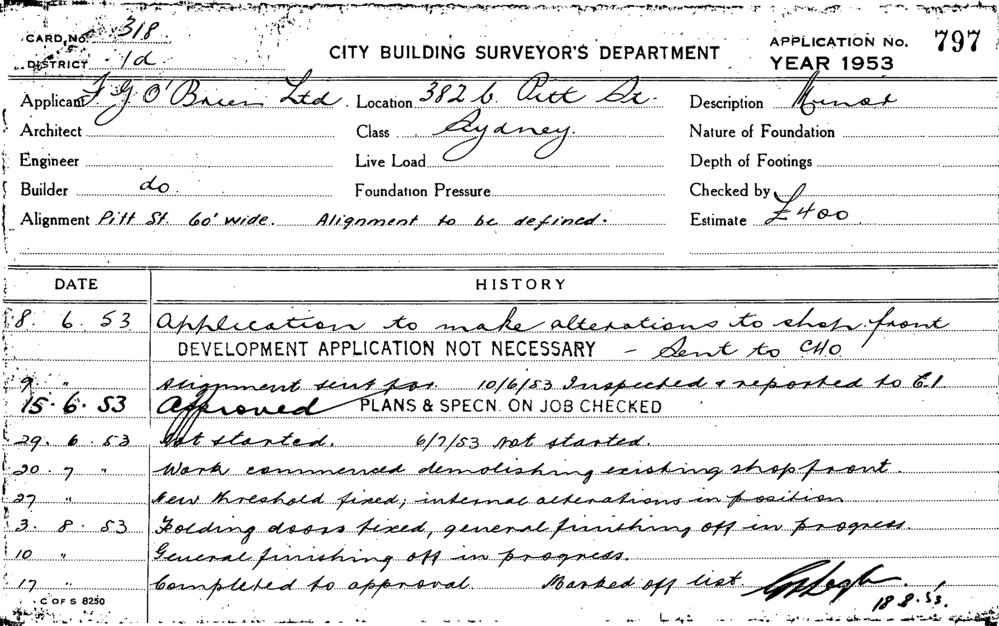 CARD No. 318
DISTRICT 1d
CITY BUILDING SURVEYOR'S DEPARTMENT
APPLICATION No. 797
YEAR 1953
Applicant F G O'Brien Ltd. Location 382 b. Pitt St. Description Minor
Architect Class Sydney. Nature of Foundation
Engineer Live Load Depth of Footings
Builder do. Foundation Pressure Checked by
Alignment Pitt St. 60' wide. Alignment to be defined. Estimate £400
DATE HISTORY
8. 6. 53 Application to make alterations to shop front
DEVELOPMENT APPLICATION NOT NECESSARY - Sent to CHO
9 " Alignment sent for. 10/6/53 Inspected & reported to C.I
15. 6. 53 Approved PLANS & SPECN. ON JOB CHECKED
29. 6. 53 Not started. 6/7/53 Not started.
20. 7 " Work commenced demolishing existing shop front.
27 " New threshold fixed; internal alterations in position
3. 8. 53 Folding doors fixed, general finishing off in progress.
10 " General finishing off in progress.
17 " Completed to approval. Marked off list.
18.8.53.
C OF S 8250